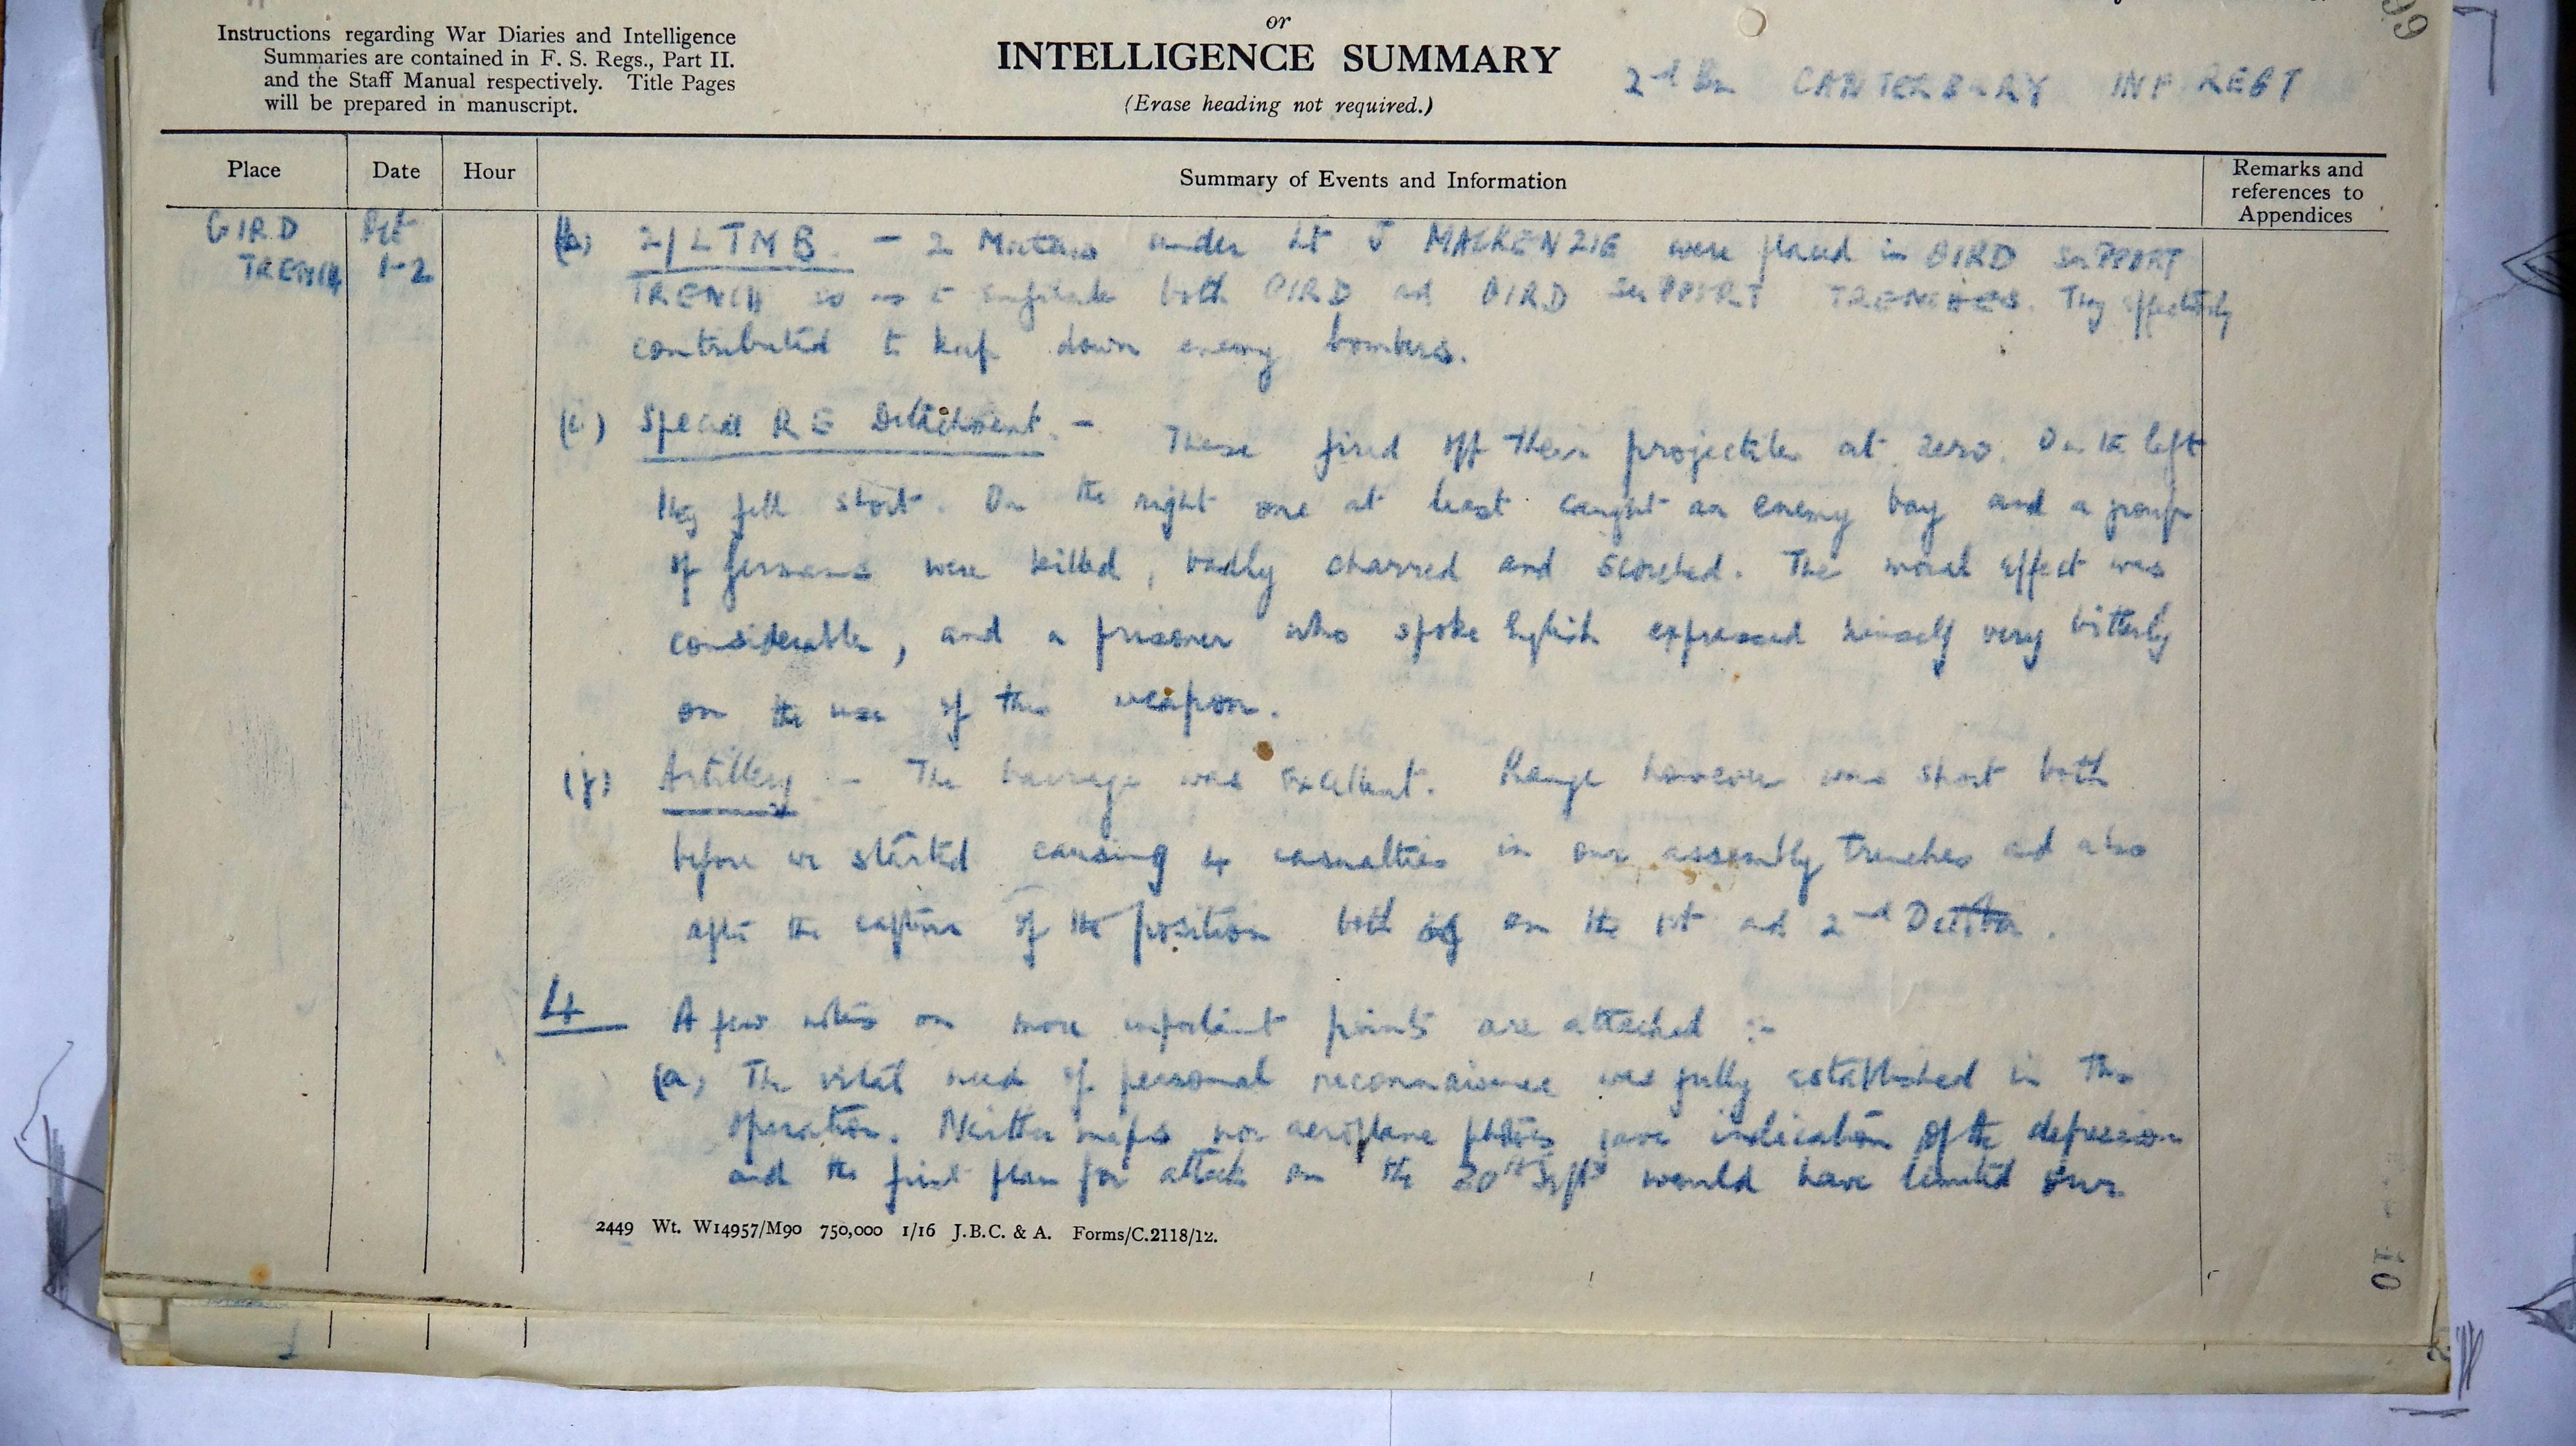 or
Instructions regarding War Diaries and Intelligence
Summaries are contained in F. S. Regs., Part II.
and the Staff Manual respectively. Title Pages
will be prepared in manuscript.
INTELLIGENCE SUMMARY
(Erase heading not required.)
2nd Bn CANTERBURY INF REGT
99
Place
Date
Hour
Summary of Events and Information
Remarks and
references to
Appendices
GIRD
TRENCH
Oct
1-2
(h) 2/LTMB. - 2 Mortars under Lt J MACKENZIE were placed in GIRD SUPPORT
TRENCH so as to enfilade both GIRD and GIRD SUPPORT TRENCHES. They effectively
contributed to keep down enemy bombers.
(i) Special RE Detachment. - These fired off their projectiles at zero. On the left
they fell short. On the right one at least caught an enemy bay and a group
of germans were killed, badly charred and scorched. The moral effect was
considerable, and a prisoner who spoke English expressed himself very bitterly
on the use of this weapon.
(j) Artillery - The barrage was excellent. Range however was short both
before we started causing 4 casualties in our assembly trenches and also
after the capture of the position both on the 1st and 2nd
4 A few notes on more important points are attached :-
(a) The vital need of personal reconnaissance was fully established in this
operation. Neither maps nor aeroplane photos gave indication of the depression
and the first plan for attack on the 30th Sept would have limited our
2449 Wt. W14957/M90 750,000 1/16 J.B.C. & A. Forms/C.2118/12.
10